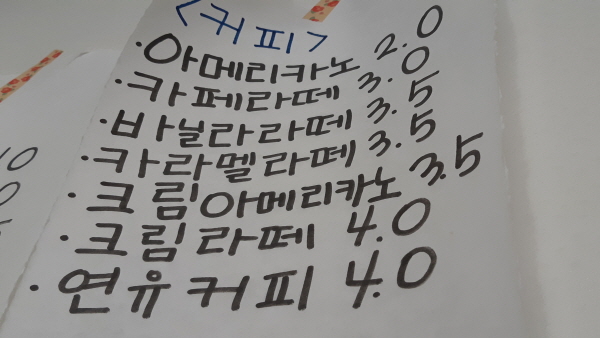 <커피>
·아메리카노 2.0
·카페라떼 3.0
·바닐라라떼 3.5
·카라멜라떼 3.5
·크림아메리카노 3.5
·크림라떼 4.0
·연유커피 4.0